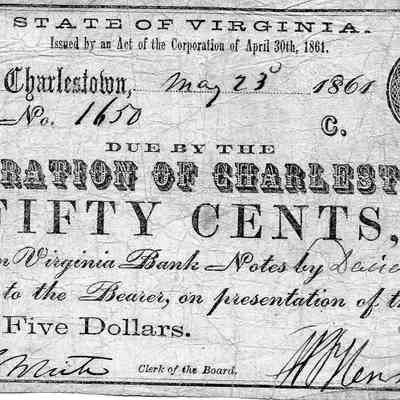 STATE OF VIRGINIA.
Issued by an Act of the Corporation of April 30th, 1861.
Charlestown, May 23 1861
No. 1650 C.
DUE BY THE
RATION OF CHARLEST
FIFTY CENTS,
n Virginia Bank Notes by
to the Bearer, on presentation of th
Five Dollars.
White Clerk of the Board.